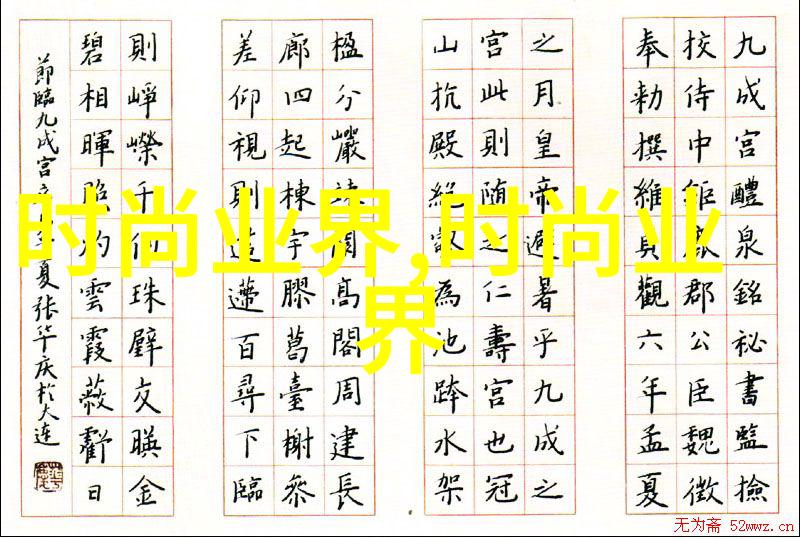 九成宮醴泉銘祕書監撿
挍侍中鉅鹿郡公臣魏徵
奉勅撰維貞觀六年孟夏
之月皇帝避暑乎九成之
宮此則随之仁壽宮也冠
山抗殿絕壑為池跨水架
楹分巖竦闕高閣周建長
廊四起棟宇膠葛臺榭參
差仰視則迢遰百尋下臨
則崢嶸千仞珠璧交暎金
碧相暉照灼雲霞蔽虧日
節臨九成宮夏张华庆於大连
时尚业界,时尚业
界
无为斋 52wwz.cn